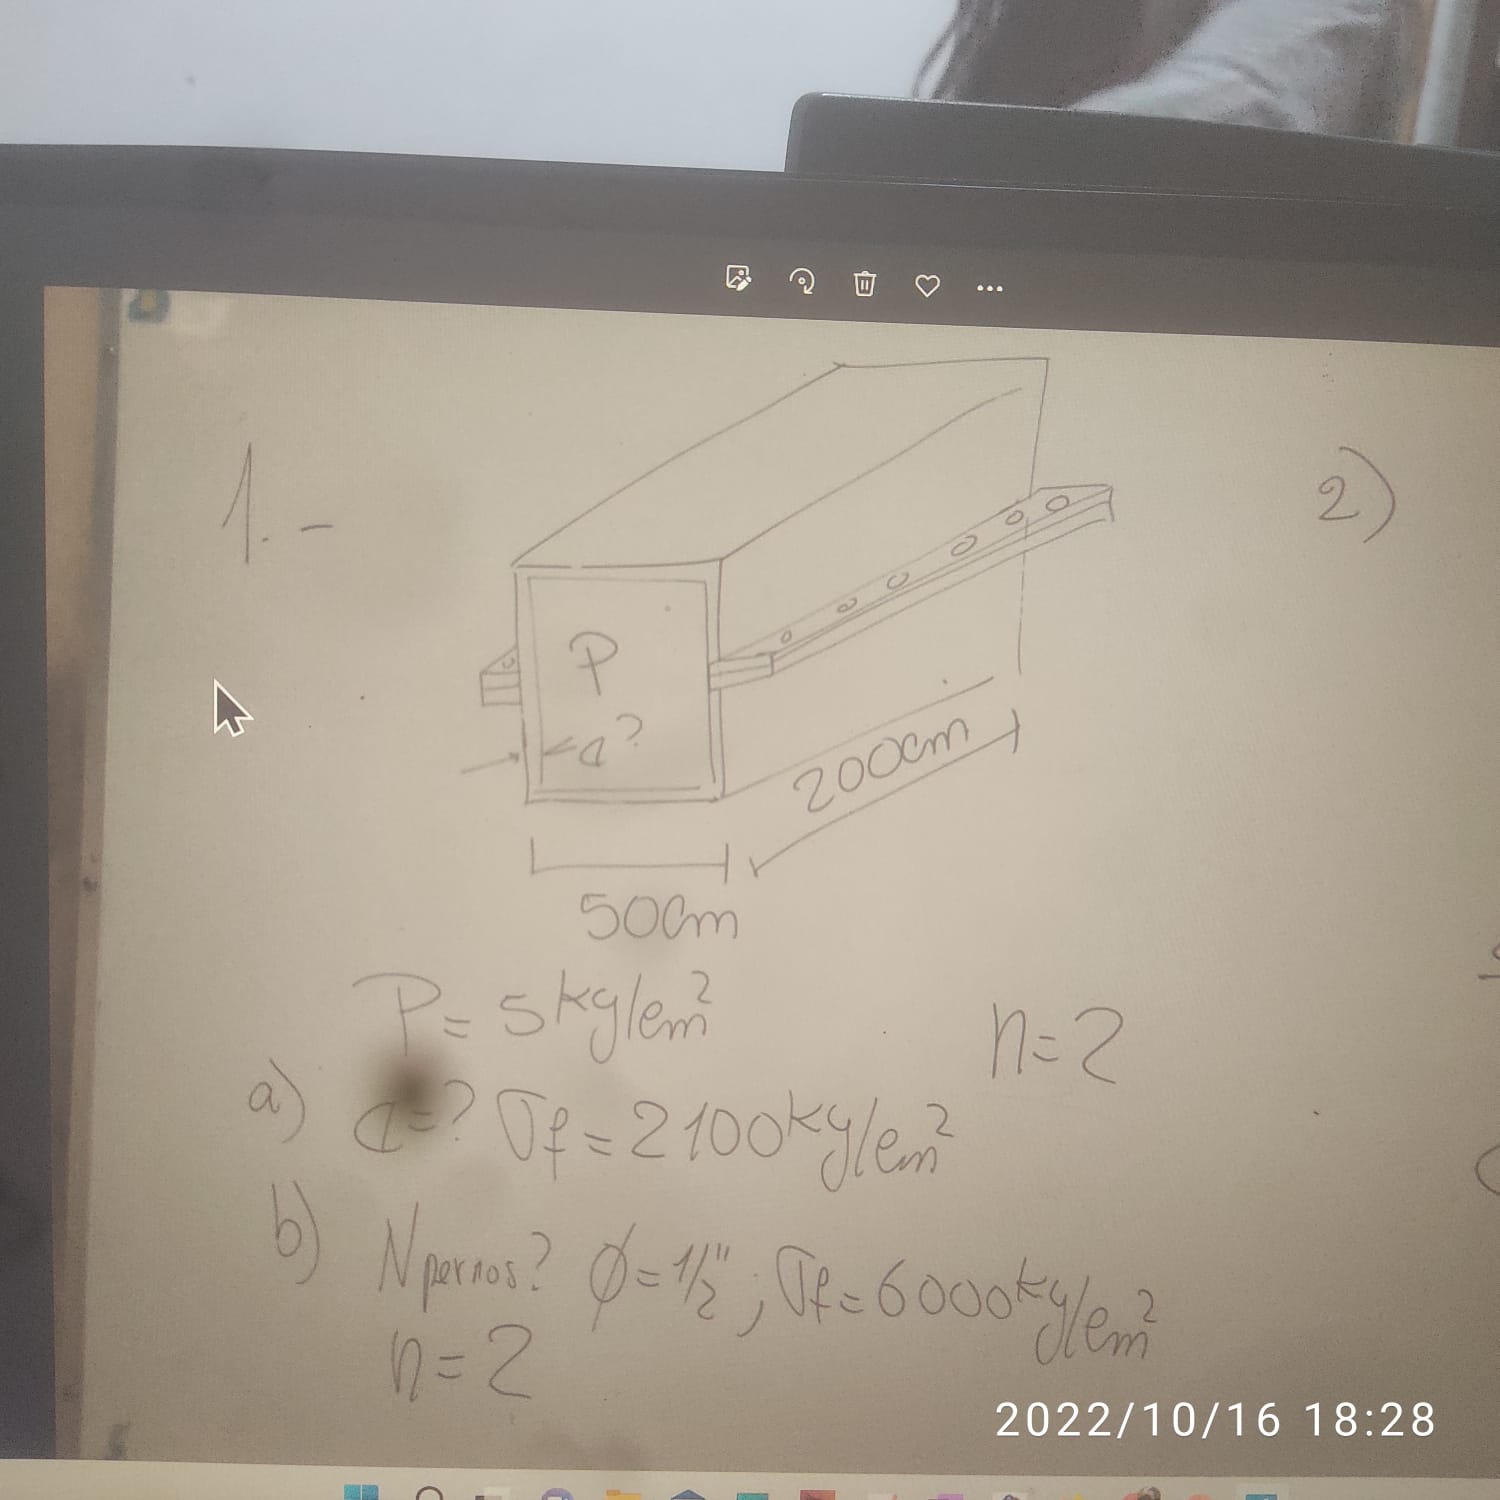 1.-
2)
P
a?
200cm
50cm
P= 5kg/cm²
n=2
a) a=? σf=2100kg/cm²
b) Npernos? φ=1/2"; σf=6000kg/cm²
n=2
2022/10/16 18:28